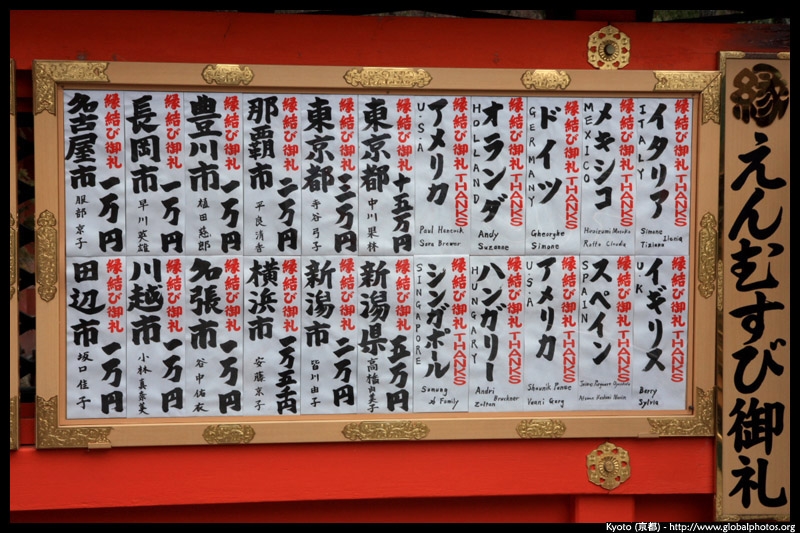 縁
えんむすび御礼
縁結び御礼 THANKS
イタリア
ITALY
Simone
Ilenia
Tiziano
縁結び御礼 THANKS
メキシコ
MEXICO
縁結び御礼 THANKS
ドイツ
GERMANY
Gheorghe
Simone
縁結び御礼 THANKS
オランダ
HOLLAND
Andy
Suzanne
縁結び御礼 THANKS
アメリカ
U.S.A
Paul Hancock
Sara Brewer
縁結び御礼 十五万円
東京都
中川 果林
縁結び御礼 三万円
東京都
寺谷 弓子
縁結び御礼 二万円
那覇市
平良 清香
縁結び御礼 一万円
豊川市
植田 慈郎
縁結び御礼 一万円
長岡市
早川 英雄
縁結び御礼 一万円
名古屋市
服部 京子
縁結び御礼 THANKS
イギリス
U.K
Berry
Sylvia
縁結び御礼 THANKS
スペイン
SPAIN
縁結び御礼 THANKS
アメリカ
U.S.A
縁結び御礼 THANKS
ハンガリー
HUNGARY
Andri
Bruckner
Zoltan
縁結び御礼 THANKS
シンガポール
SINGAPORE
& Family
縁結び御礼 五万円
新潟県
高橋 由美子
縁結び御礼 二万円
新潟市
皆川 由子
縁結び御礼 一万五千円
横浜市
安藤 京子
縁結び御礼 一万円
名張市
谷中 佑衣
縁結び御礼 一万円
川越市
小林 真奈美
縁結び御礼 一万円
田辺市
坂口 佳子
Kyoto (京都) - http://www.globalphotos.org